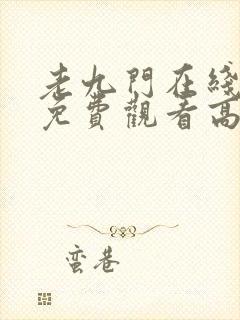 老九門在綫
免費觀看高
蛮巷